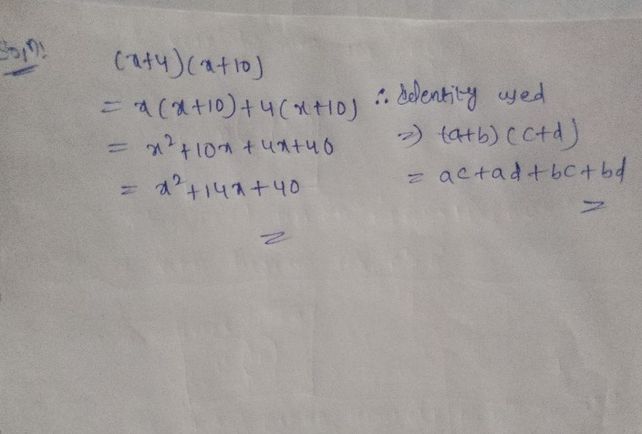 Soln:
(x+4)(x+10)
= x(x+10)+4(x+10) ∴ Identity used
= x²+10x+4x+40 ⇒ (a+b)(c+d)
= x²+14x+40 = ac+ad+bc+bd